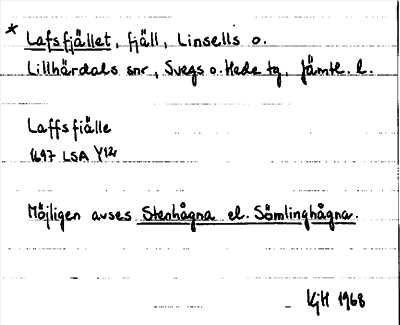 * Lafsfjället, fjäll, Linsells o.
Lillhärdals snr, Svegs o. Hede tg, Jämtl. l.
Laffsfiälle
1697 LSA Y12
Möjligen avses Stenhågna el. Sömlinghågna.
KjH 1968